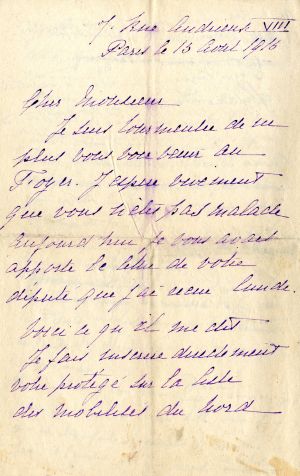 7. Rue Andrieux VIII
Paris le 13 Aout 1916
Cher Monsieur
Je suis tourmentée de ne
plus vous voir venir au
Foyer. J'espère vivement
que vous n'êtes pas malade
aujourd'hui je vous avais
apporté la lettre de votre
député que j'ai reçue lundi.
Voici ce qu'il me dit
Je fais inscrire directement
votre protégé sur la liste
des mobilisés du Nord